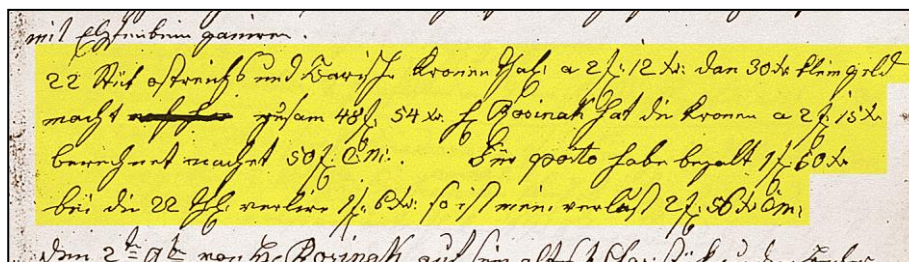 mit Elfenbein garniren.
22 Stük östreichs und Bairische Kronen Thal: a 2f: 12 xr: dan 30 xr klein geld
macht zusam 48f: 54 xr. H Bosinak hat die Kronen a 2f: 15 xr
berechnet machet 50f: Cm:. Für porto habe bezalt 1f: 50 xr
bei die 22 Thl: verlire 1f: 6 xr: so ist mein verlust 2f: 56 xr Cm:
den 2t von H Bosinak auf ein